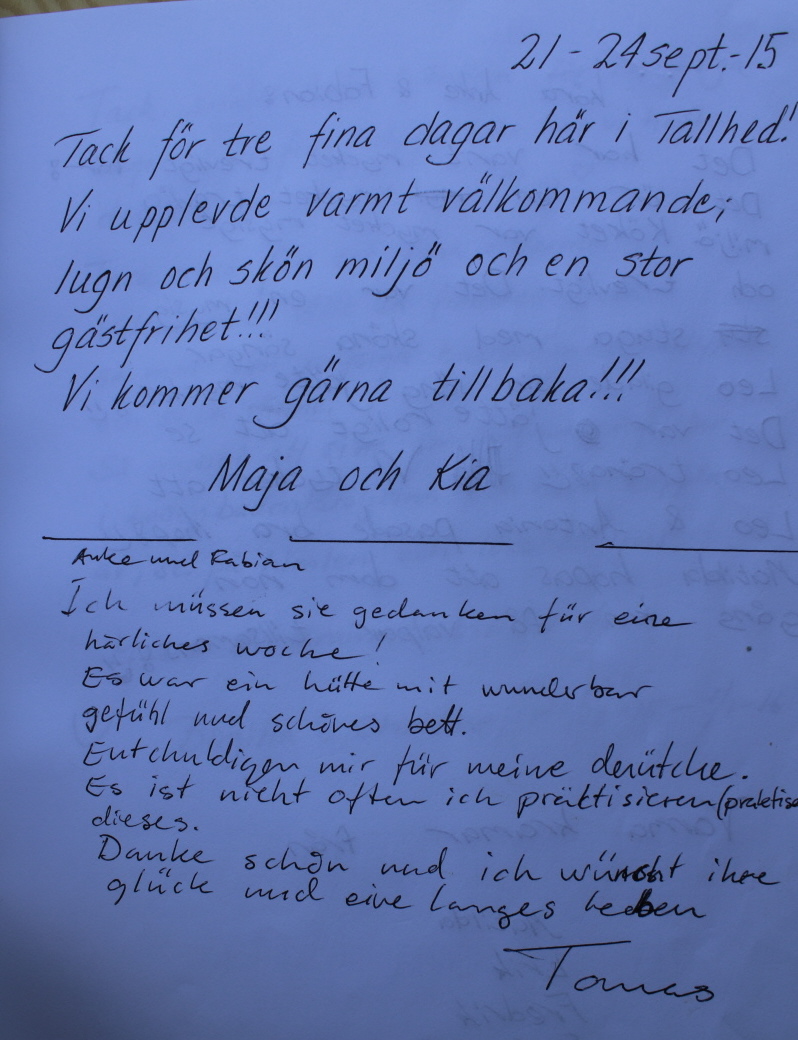 21-24 sept.-15
Tack för tre fina dagar här i Tallhed!
Vi upplevde varmt välkommande,
lugn och skön miljö och en stor
gästfrihet!!!
Vi kommer gärna tillbaka!!!
Maja och Kia
Anke und Fabian
Ich müssen sie gedanken für eine
härliches woche!
Es war ein hütte mit wunderbar
gefühl und schönes bett.
Entchuldigen mir für meine deütche.
Es ist nicht often ich präktisieren (praktise
dieses.
Danke schön und ich wünscht ihre
glück und eine langes leben
Tomas